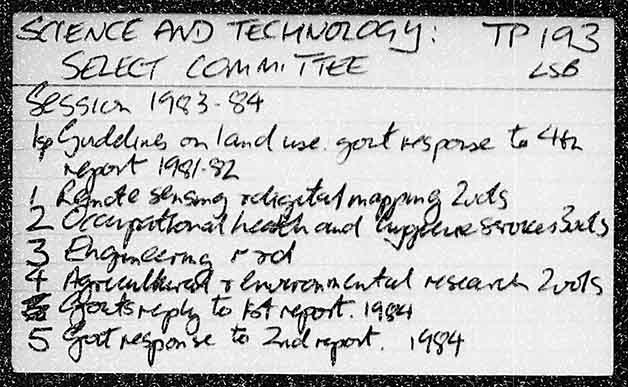 SCIENCE AND TECHNOLOGY: TP 193
SELECT COMMITTEE LSB
Session 1983-84
1sp Guidelines on land use. govt response to 4th
report 1981-82
1 Remote sensing & digital mapping 2 vols
2 Occupational health and hygiene services 3 vols
3 Engineering r & d
4 Agricultural & environmental research 2 vols
Govts reply to 1st report. 1984
5 Govt response to 2nd report. 1984